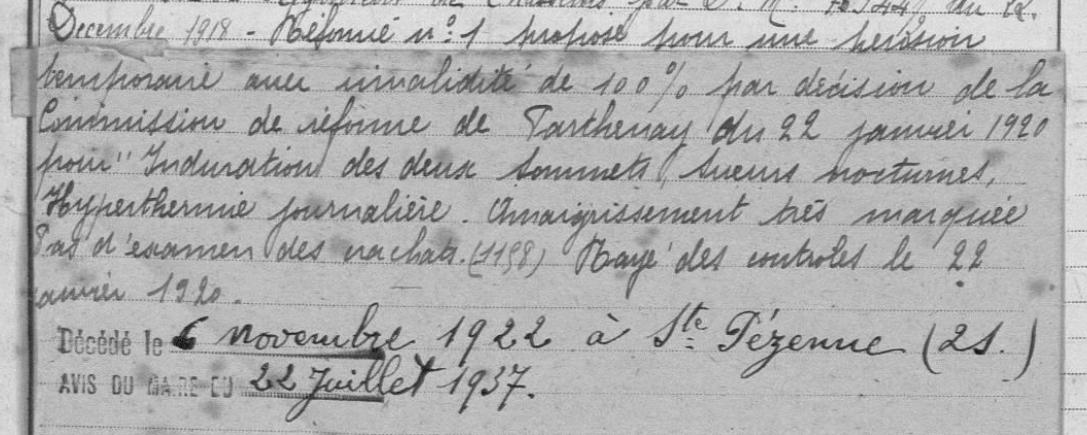 Régiment de Chasseurs par D. M. du 22.
Decembre 1918 - Réformé n°: 1 proposé pour une pension
temporaire avec invalidité de 100% par décision de la
Commission de réforme de Parthenay du 22 janvier 1920
pour " Induration des deux sommets, sueurs nocturnes,
Hyperthermie journalière. Amaigrissement très marquée
Pas d'examen des crachats. (1198) Rayé des controles le 22
janvier 1920.
Décédé le 6 novembre 1922 à Ste Pézenne (2S.)
AVIS DU MAIRE DU 22 Juillet 1937.